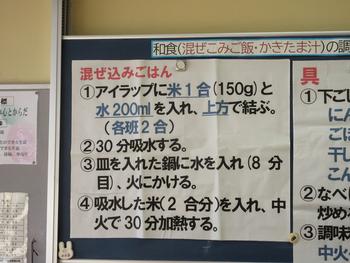 和食(混ぜこみご飯・かきたま汁)の調
混ぜ込みごはん
①アイラップに米1合(150g)と
水200mlを入れ、上方で結ぶ。
(各班2合)
②30分吸水する。
③皿を入れた鍋に水を入れ(8分
目)、火にかける。
④吸水した米(2合分)を入れ、中
火で30分加熱する。
具
①下ごし
にん
ごぼ
干し
こん
②なべに
炒め
③調味
中火
標
心とからだ